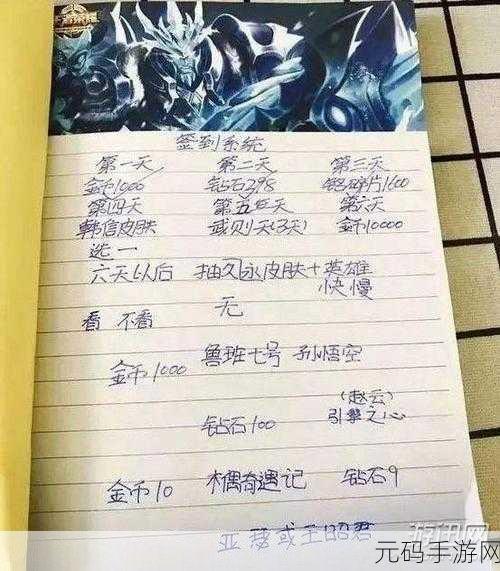 王者荣耀
签到系统
第一天 第二天 第三天
金币1000 钻石398 铭碎片1600
第四天 第五天 第六天
韩信皮肤 或则天(3天) 金币10000
选一
六天以后 抽久永皮肤+英雄
快慢
看 不看 无
金币1000 鲁班七号 孙悟空
(赵云)
钻石100 引擎之心
金币10 木偶奇遇记 钻石9
亚瑟或王昭君
游讯网
元码手游网